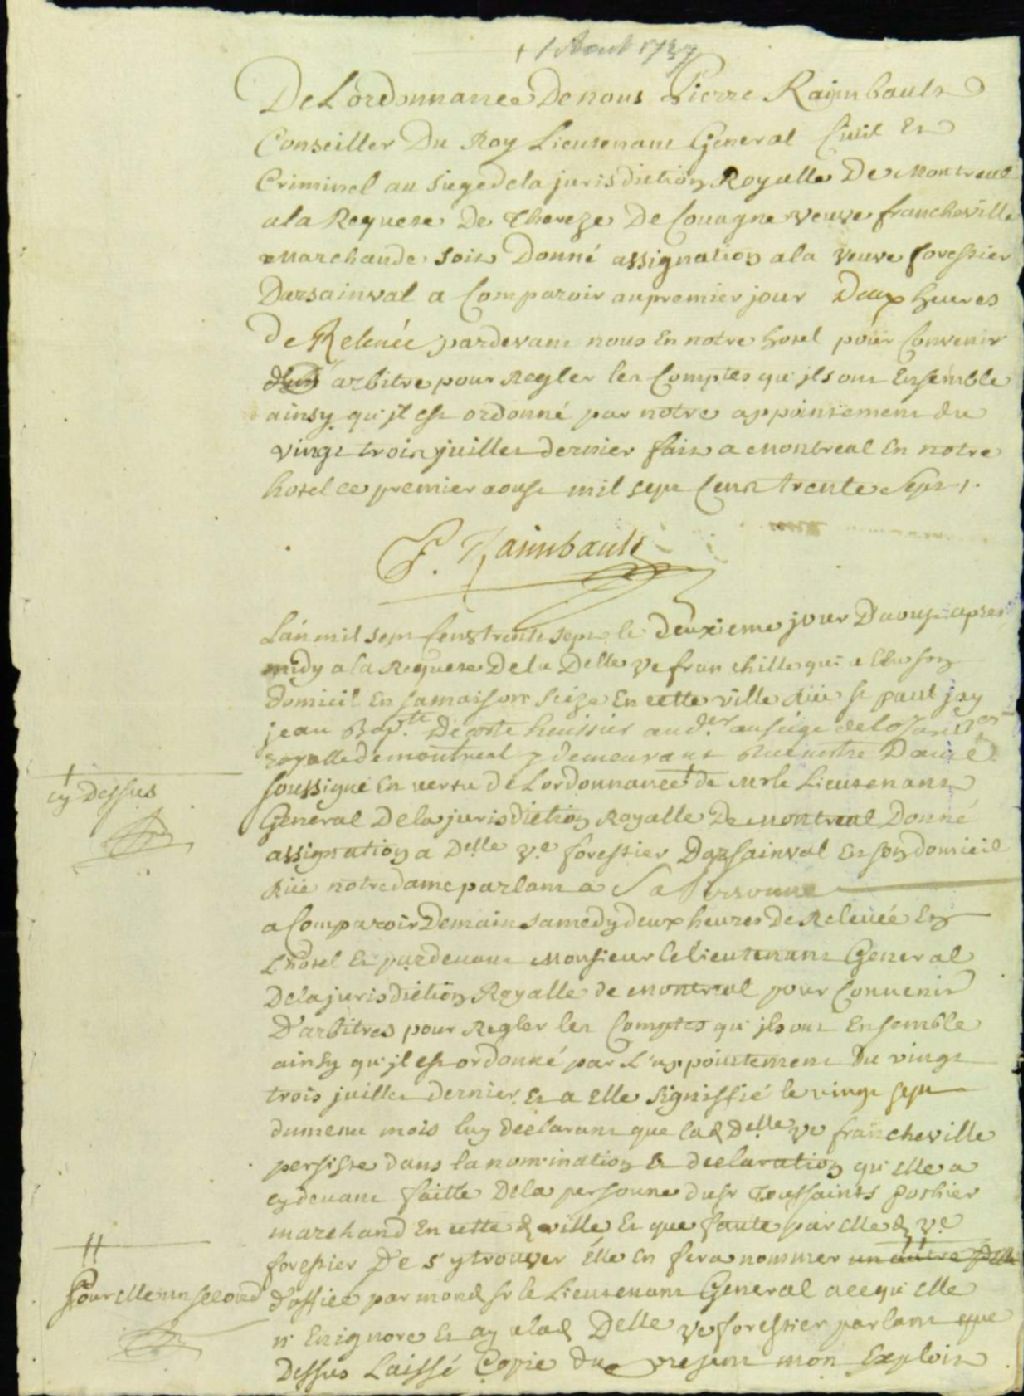 1 Aout 1737
De Lordonnance De nous Pierre Raimbault
Conseiller Du Roy Lieutenant General Civil Et
Criminel au siege de la jurisdiction Royalle De Montreal
a la Requete De Thereze De Couagne veuve francheville
Marchande soit Donné assignation a la veuve forestier
Darsainval a Comparoir au premier jour Deux heures
de Relevée pardevant nous En notre hotel pour Convenir
arbitre pour Regler les Comptes qu'ils ont Ensemble
ainsy qu'il est ordonné par notre appointement du
vingt trois juillet dernier fait a Montreal En notre
hotel ce premier aoust mil sept Cent trente Sept
P. Raimbault
Lan mil sept Cent trente sept le deuxieme jour Daoust apres
midy a la Requete De la Delle ve franchille qui a Elu son
domicil En sa maison seize En cette ville Rüe st paul jay
jean Bapte Decoste huissier au siege de la
royalle de montreal y demeurant Rue nostre Dame
soussigné En vertu de Lordonnance de Mr le Lieutenant
cy Dessus
General De la jurisdiction Royalle De Montreal Donné
assignation a Delle ve forestier Darsainval En son domicil
Rüe notre dame parlant a Sa Personne
a Comparoir Demain samedy deux heures De Relevée En
L'hotel Et pardevant Monsieur le lieutenant General
De la jurisdiction Royalle de Montreal pour Convenir
D'arbitres pour Regler les Comptes qu'ils ont Ensemble
ainsy qu'il est ordonné par L'appointement Du vingt
trois juillet dernier Et a Elle Signiffié le vingt sept
du meme mois luy declarant que lad Delle ve francheville
persiste dans la nomination & declaration qu'elle a
cy devant faitte De la personne du sr Toussaints Pothier
marchand En cette d ville Et que faute par elle d ve
forestier De s'y trouver Elle En fera nommer un autre
Pour elle un second
D'office par mond sr le Lieutenant General a ce qu'elle
n'En ignore Et ay a lad Delle ve forestier parlant que
Dessus Laissé Copie du present mon Exploit